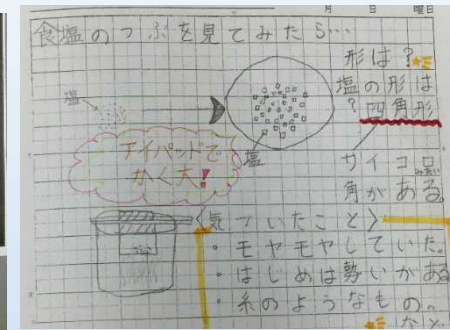 月 日 曜日
食塩のつぶを見てみたら…
形は？
塩の形は
？四角形
塩
塩
アイパッドで
かく大！
サイコロ
みたい
角がある。
〈気づいたこと〉
・モヤモヤしていた。
・はじめは勢いがある
・糸のようなもの。
など